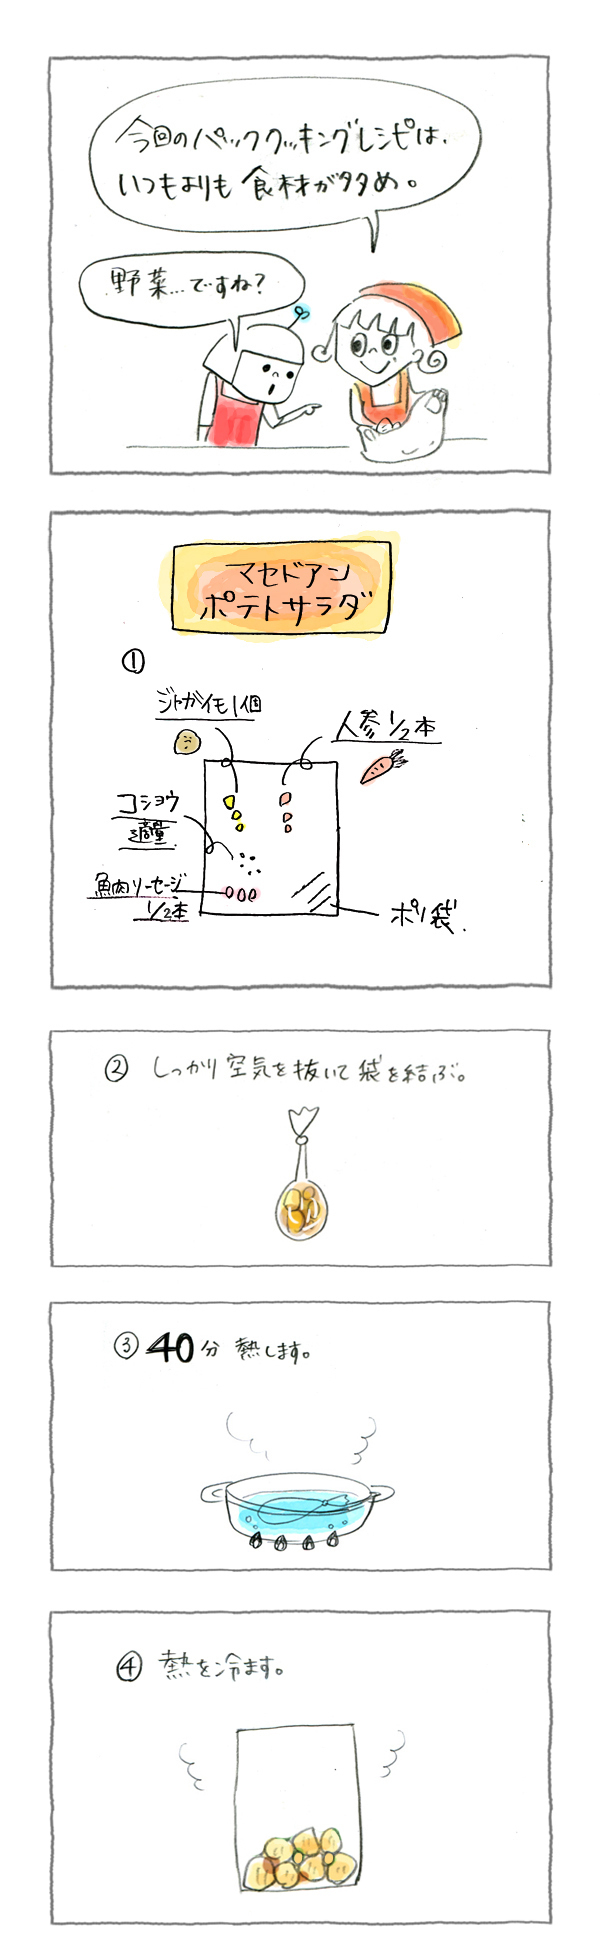 今回のパッククッキングレシピは、
いつもよりも食材が多め。
野菜…ですね?
マセドアン
ポテトサラダ
①
ジャガイモ1個
人参1/2本
コショウ
適量
魚肉ソーセージ
1/2本
ポリ袋
② しっかり空気を抜いて袋を結ぶ。
③ 40分 熱します。
④ 熱を冷ます。